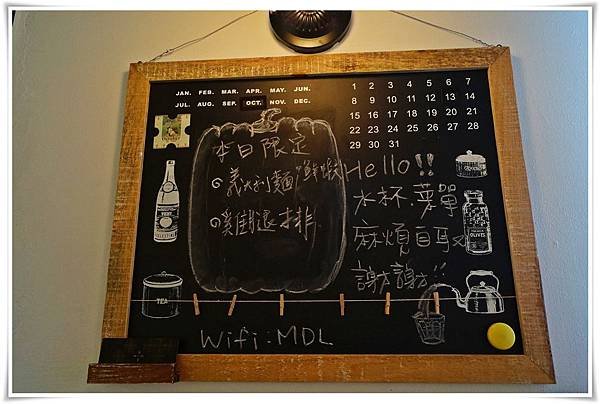 JAN. FEB. MAR. APR. MAY. JUN.
JUL. AUG. SEP. OCT. NOV. DEC.
1 2 3 4 5 6 7
8 9 10 11 12 13 14
15 16 17 18 19 20 21
22 23 24 25 26 27 28
29 30 31
本日限定
義大利麵 鮮蝦
雞腿排
Hello!!
水杯.菜單
麻煩自取
謝謝!!
TEA
OLIVES
Wifi:MDL